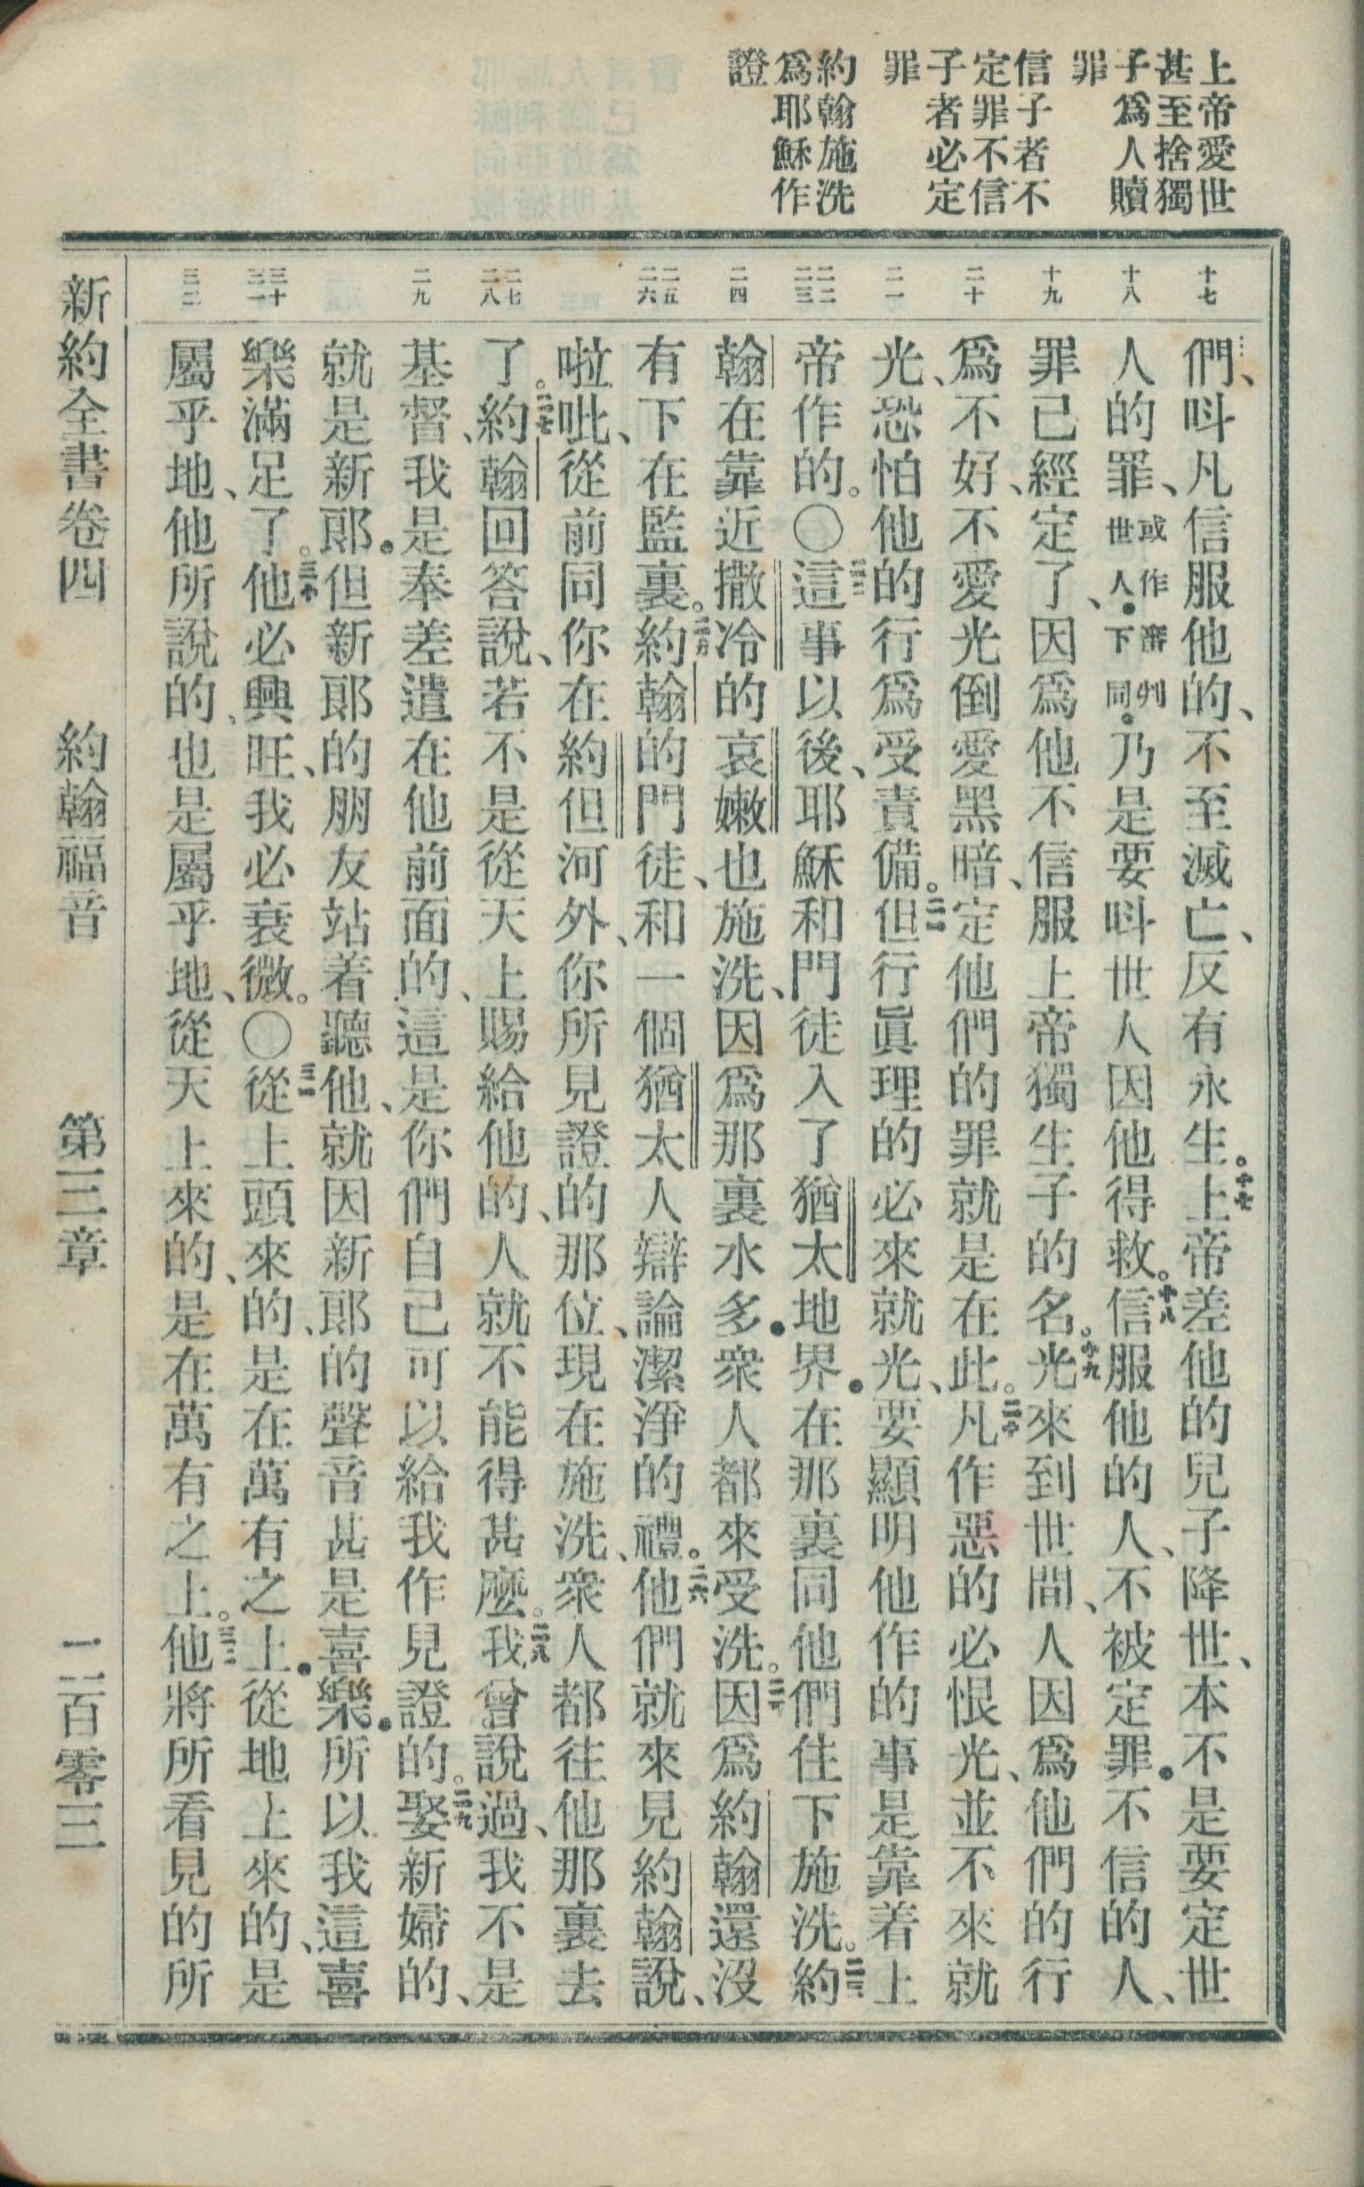 上帝愛世
甚至捨獨
子爲人贖
罪
信子者不
定罪不信
子者必定
罪
約翰施洗
爲耶穌作
證
十七
十八
十九
二十
二一
二二
二三
二四
二五
二六
二七
二八
二九
三十
三一
三二
們、呌凡信服他的、不至滅亡、反有永生。十七上帝差他的兒子降世、本不是要定世
人的罪、或作審判世人●下同。乃是要呌世人因他得救。十八信服他的人、不被定罪●不信的人、
罪已經定了、因爲他不信服上帝獨生子的名。十九光來到世間、人因爲他們的行
爲不好、不愛光倒愛黑暗、定他們的罪就是在此。二十凡作惡的必恨光、並不來就
光、恐怕他的行爲受責備。二一但行眞理的必來就光、要顯明他作的事是靠着上
帝作的。〇二二這事以後、耶穌和門徒入了猶太地界●在那裏同他們住下施洗。二三約
翰在靠近撒冷的哀嫩也施洗、因爲那裏水多●衆人都來受洗。二四因爲約翰還沒
有下在監裏。二五約翰的門徒、和一個猶太人辯論潔淨的禮。二六他們就來見約翰說、
啦吡、從前同你在約但河外、你所見證的那位、現在施洗、衆人都往他那裏去
了。二七約翰回答說、若不是從天上賜給他的、人就不能得甚麼。二八我曾說過、我不是
基督、我是奉差遣在他前面的、這是你們自己可以給我作見證的。二九娶新婦的、
就是新郞●但新郞的朋友站着聽他、就因新郞的聲音甚是喜樂●所以我這喜
樂滿足了。三十他必興旺、我必衰微。〇三一從上頭來的、是在萬有之上●從地上來的、是
屬乎地、他所說的、也是屬乎地、從天上來的、是在萬有之上。三二他將所看見的所
新約全書卷四　約翰福音　第三章　二百零三